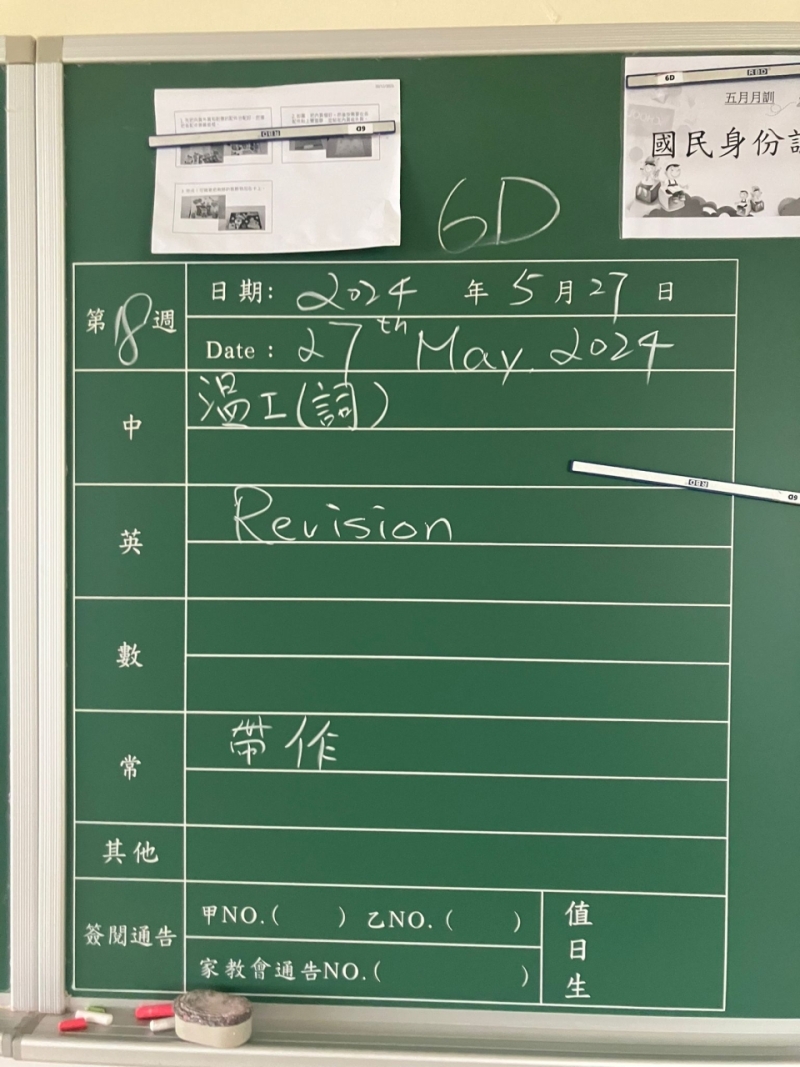 6D
RBD
6D
RBD
五月月訓
國民身份
6D
第8週
日期：2024年5月27日
Date：27th May, 2024
中
溫工(詞)
RBD
6D
英
Revision
數
常
帶作
其他
簽閱通告
甲NO.( ) 乙NO.( )
家教會通告NO.( )
值日生